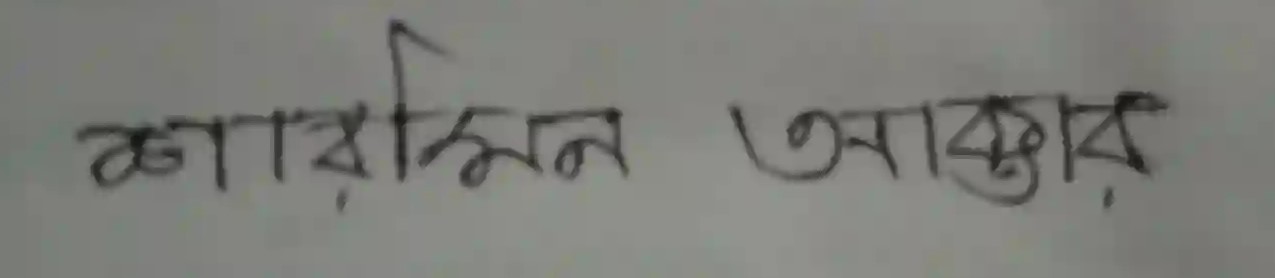 শারমিন আক্তার